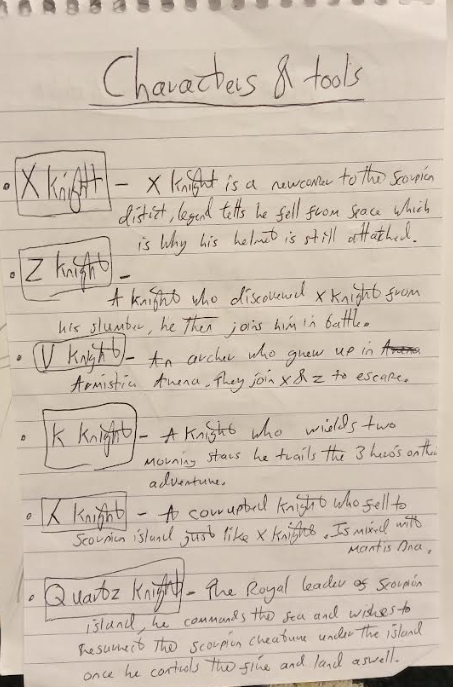 Characters & tools
X Knight - X Knight is a newcomer to the Scorpion
distict, legend tells he fell from space which
is why his helmet is still attathed.
Z Knight -
A Knight who discovered X Knight from
his slumber, he then joins him in battle.
V Knight - An archer who grew up in Arena
Armistia Arena. They join X & Z to escape.
K Knight - A Knight who wields two
morning stars he trails the 3 hero's on the
adventure.
Knight - A corrupted Knight who fell to
Scorpion island just like X Knight. Is mixed with
Mantis Dna.
Quartz Knight - The Royal leader of Scorpion
island, he commands the sea and wishes to
Resurrect the scorpion creature under the island
once he controls the fire and land aswell.